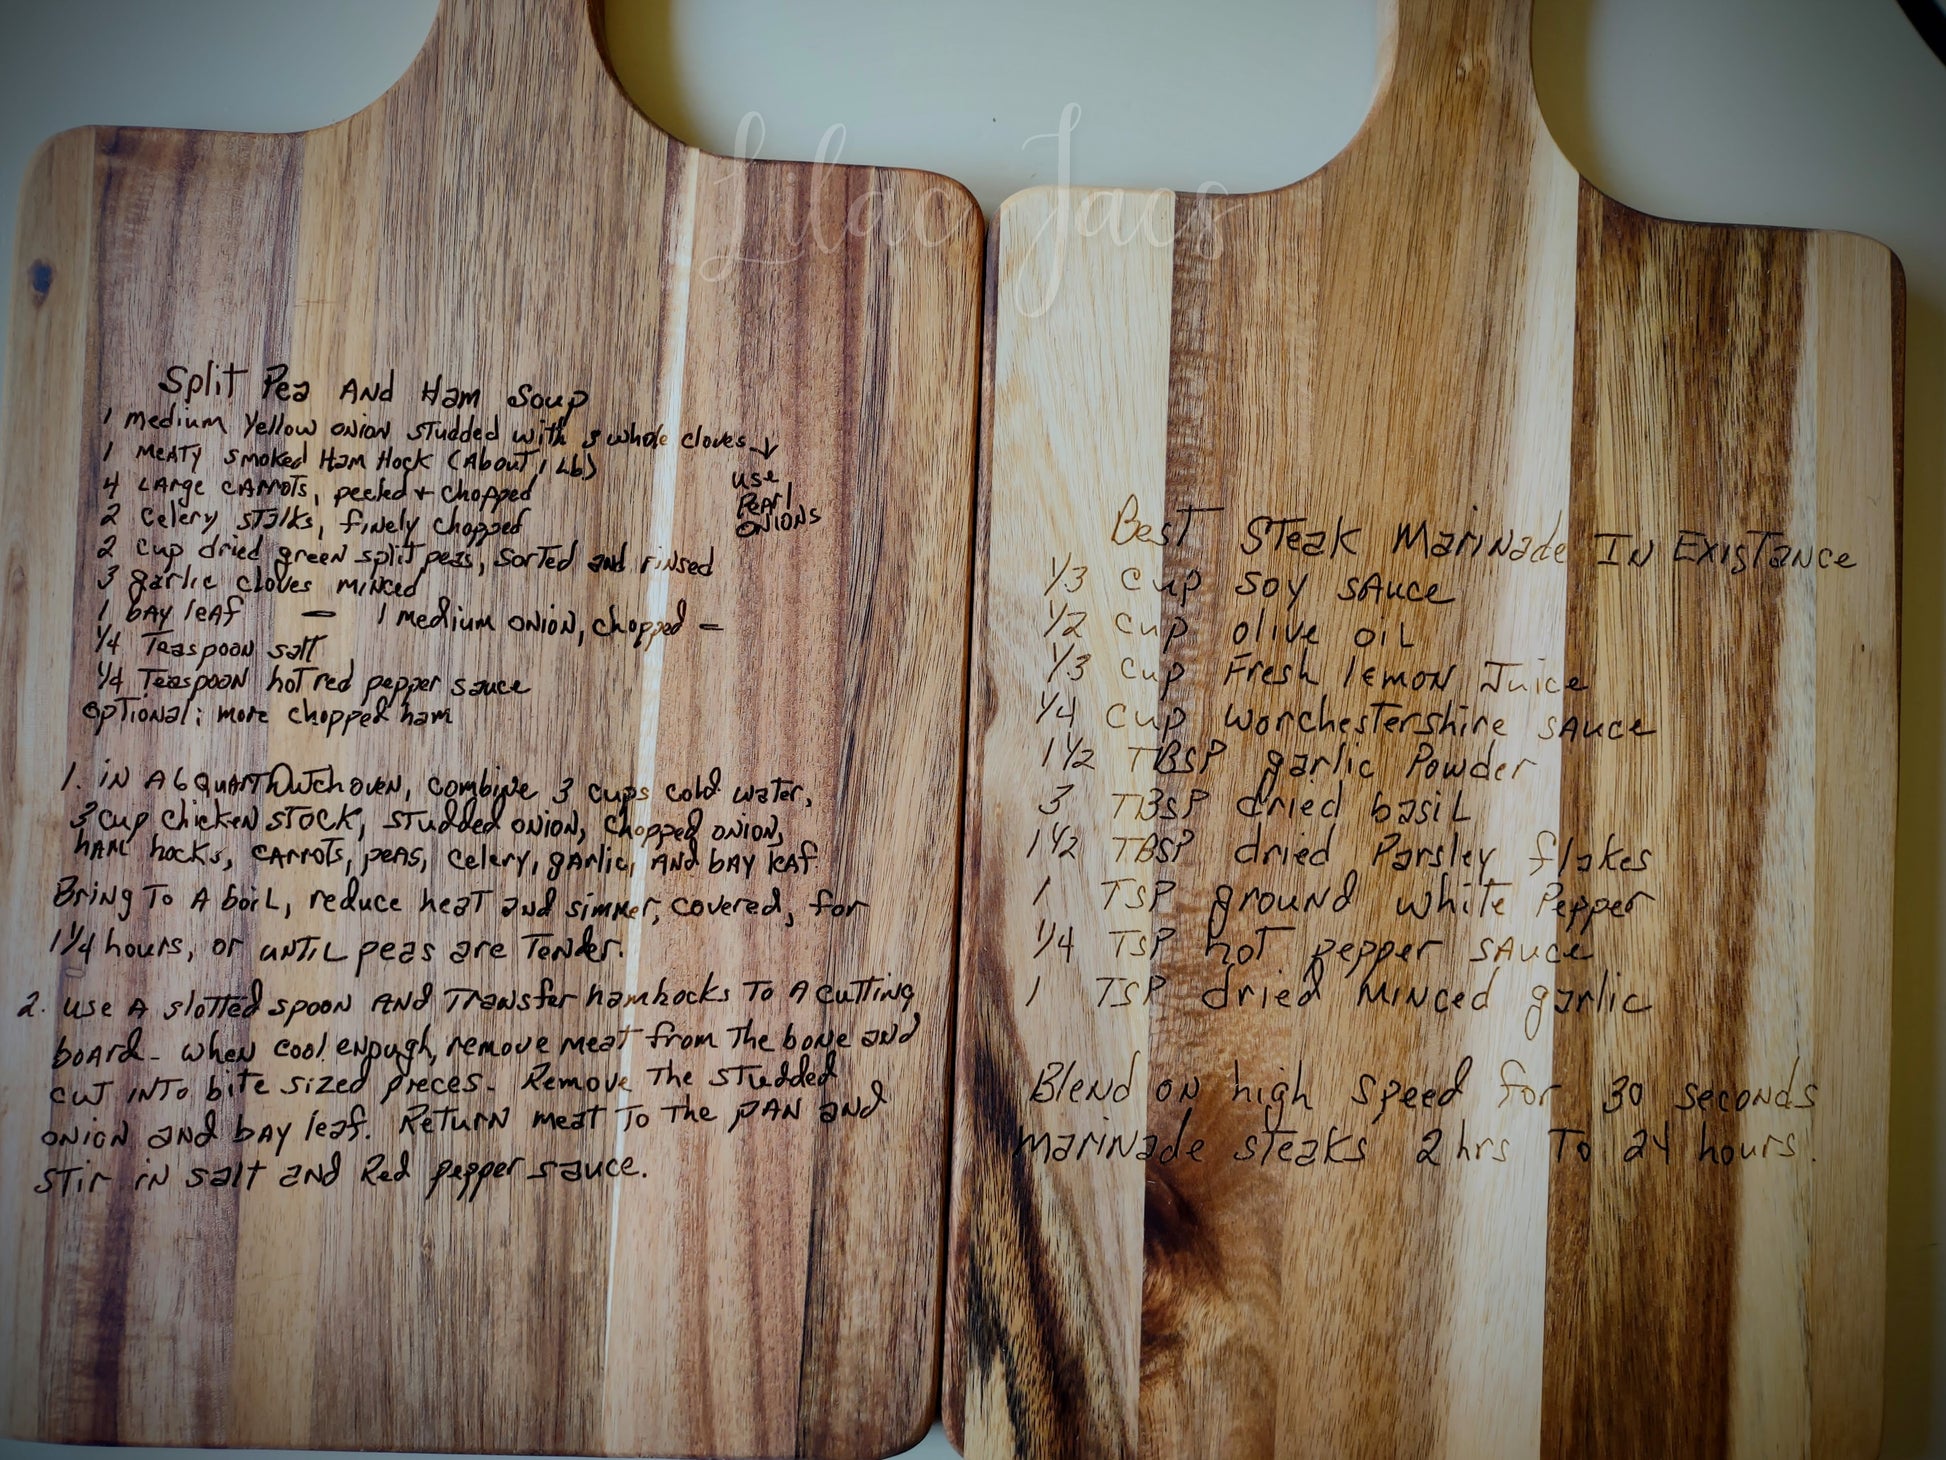 Lilac Jacs
Split Pea And Ham Soup
1 medium yellow onion studded with 3 whole cloves ↓
use
Pearl
onions
1 meaty smoked Ham Hock (About 1 Lb)
4 Large carrots, peeled + chopped
2 celery stalks, finely chopped
2 cup dried green split peas, sorted and rinsed
3 garlic cloves minced
1 bay leaf — 1 medium onion, chopped —
1/4 Teaspoon salt
1/4 Teaspoon hot red pepper sauce
optional: more chopped ham
1. in A 6 quart Dutch oven, combine 3 cups cold water,
3 cup chicken stock, studded onion, chopped onion,
ham hocks, carrots, peas, celery, garlic, and bay leaf.
Bring to A boil, reduce heat and simmer, covered, for
1 1/4 hours, or until peas are Tender.
2. use A slotted spoon and Transfer ham hocks To A cutting
board - when cool enough, remove meat from the bone and
cut into bite sized pieces. Remove the studded
onion and bay leaf. Return meat to the pan and
stir in salt and Red pepper sauce.
Best Steak Marinade In Existance
1/3 cup soy sauce
1/2 cup olive oil
1/3 cup Fresh lemon Juice
1/4 cup worchestershire sauce
1 1/2 TBSP garlic Powder
3 TBSP dried basil
1 1/2 TBSP dried Parsley flakes
1 TSP ground white Pepper
1/4 TSP hot pepper sauce
1 TSP dried Minced garlic
Blend on high speed for 30 seconds
marinade steaks 2 hrs To 24 hours.